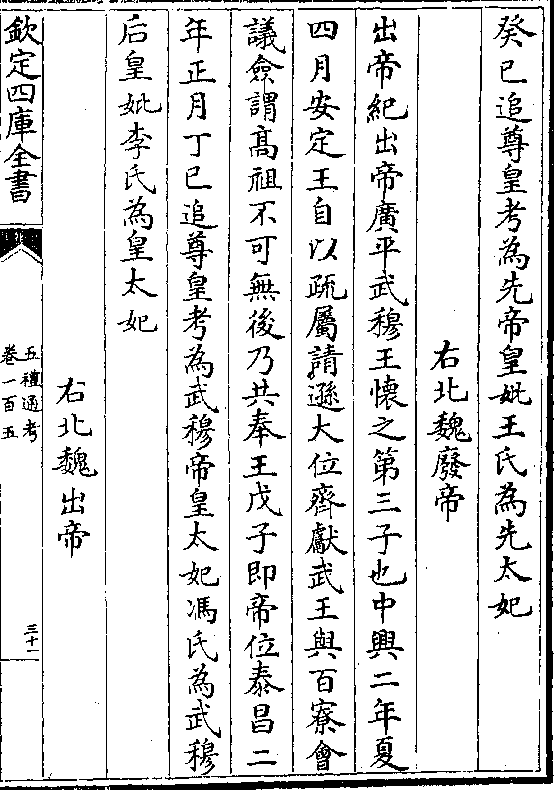 癸巳追尊皇考為先帝皇妣王氏為先太妃
右北魏廢帝
出帝紀出帝廣平武穆王懐之第三子也中興二年夏
四月安定王自以疏屬請遜大位齊獻武王與百寮會
議僉謂髙祖不可無後乃共奉王戊子即帝位泰昌二
年正月丁巳追尊皇考為武穆帝皇太妃馮氏為武穆
后皇妣李氏為皇太妃
右北魏出帝
欽定四庫全書
五禮通考
卷一百五
三十一